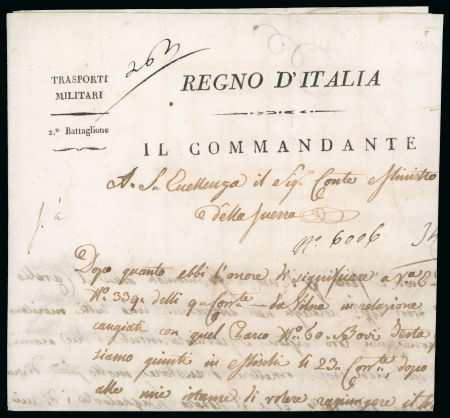 TRASPORTI
MILITARI
2.º Battaglione
263
REGNO D'ITALIA
IL COMMANDANTE
A Sua Eccellenza il Sigr Conte Ministro
della Guerra
Nº 6006
Dopo quanto ebbi l'onore di significare a
Nº 339 delli da Vilna in relazione
cangiati con quel Parco Nº 60 Bovi
siamo giunti in li 23 Corrte, dopo
alle mie istanze di volere